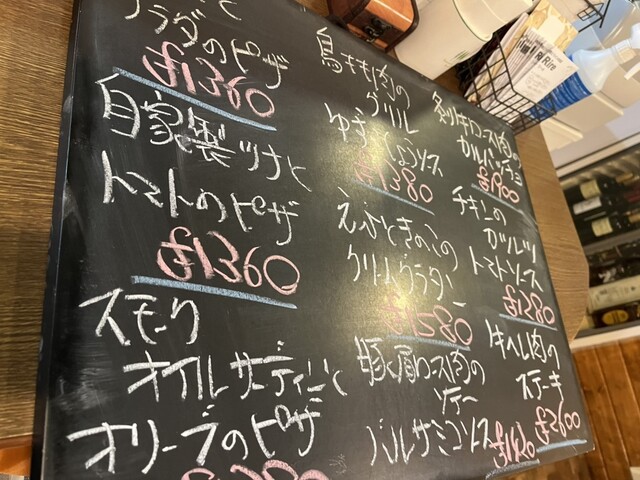 ラダのピザ
£1360
自家製ツナと
トマトのピザ
£1360
スモーク
オイルサーディンと
オリーブのピザ
鳥もも肉の
グリル
ゆずこしょうソース
£1380
えびときのこの
クリームグラタン
£1580
豚肩ロース肉の
ソテー
バルサミコソース
£1420
ロース肉の
カルパッチョ
£1900
チキンの
カツレツ
トマトソース
£1280
肉の
ステーキ
£2600